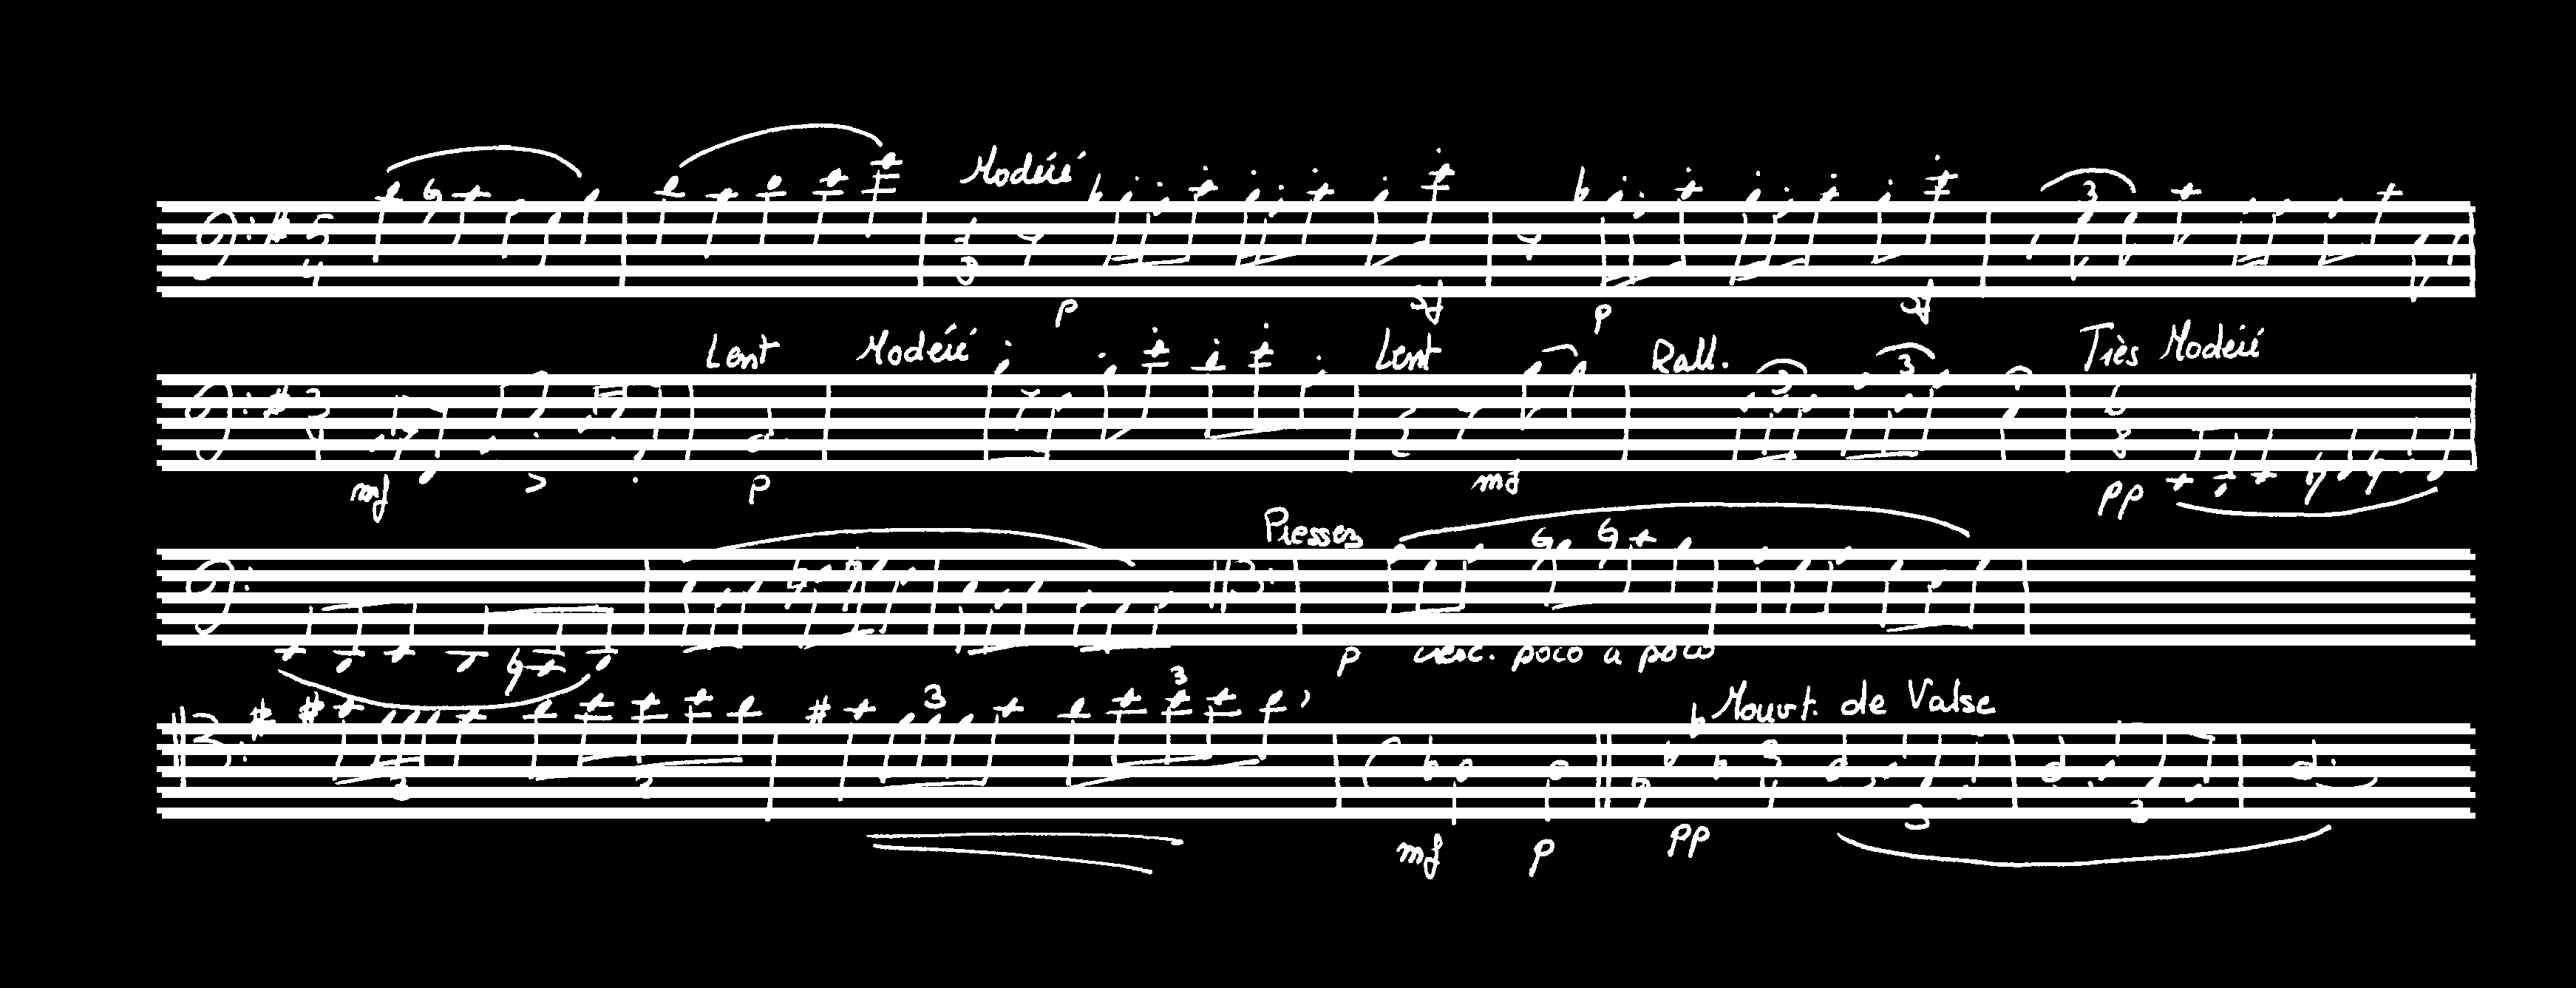 Modéré
3 p sf p sf
Lent Modéré Lent Rall. 3 3 Très Modéré
mf > p mf pp
Pressez
p cresc. poco a poco
3 3 Mouvt. de Valse
3 3 3 3
mf p pp